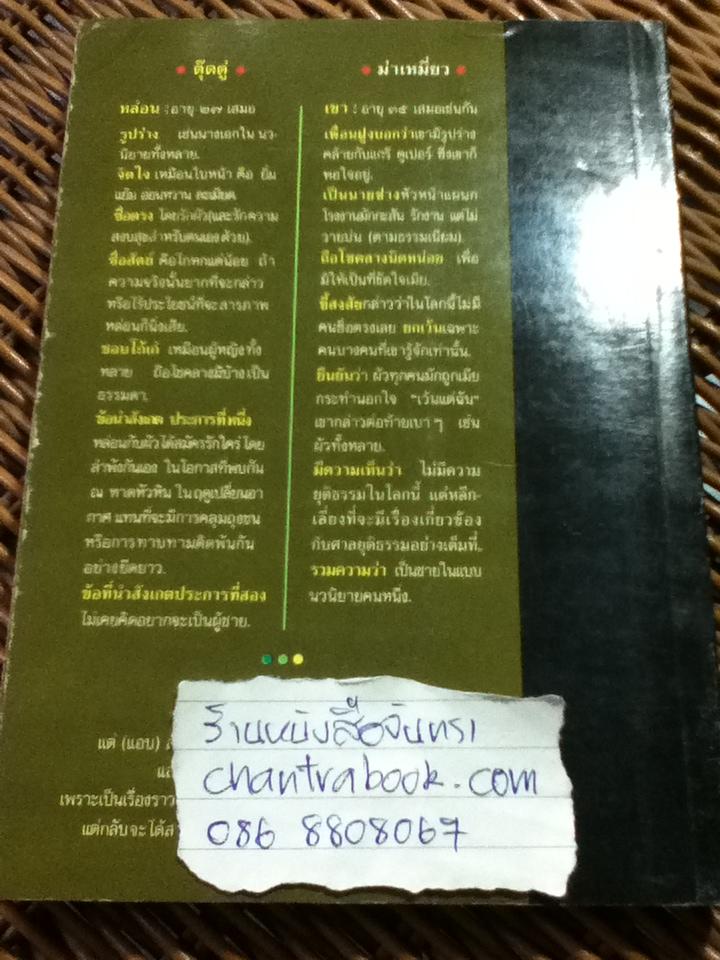 ตุ๊ดตู่
หล่อน : อายุ ๒๗ เสมอ
รูปร่าง เช่นนางเอกใน นว-
นิยายทั้งหลาย.
จิตใจ เหมือนใบหน้า คือ ยิ้ม
แย้ม อ่อนหวาน ละเมียด.
ซื่อตรง โดยรักผัว(และรักความ
สงบสุขสำหรับตนเองด้วย).
ซื่อสัตย์ คือโกหกแต่น้อย ถ้า
ความจริงนั้นยากที่จะกล่าว
หรือไร้ประโยชน์ที่จะสารภาพ
หล่อนก็นิ่งเสีย.
ชอบโก้เก๋ เหมือนผู้หญิงทั้ง
หลาย ถือโชคลางมั่งบ้างเป็น
ธรรมดา.
ข้อน่าสังเกต ประการที่หนึ่ง
หล่อนกับผัวได้สมัครรักใคร่ โดย
ลำพังกันเอง ในโอกาสที่พบกัน
ณ หาดหัวหิน ในฤดูเปลี่ยนอา
กาศ แทนที่จะมีการคลุมถุงชน
หรือการทาบทามติดพันกัน
อย่างยืดยาว.
ข้อที่น่าสังเกตประการที่สอง
ไม่เคยคิดอยากจะเป็นผู้ชาย.
ม่าเหมี่ยว
เขา : อายุ ๓๕ เสมอเช่นกัน
เพื่อนฝูงบอกว่าเขามีรูปร่าง
คล้ายกับแกรี่ คูเปอร์ ซึ่งเขาก็
พอใจอยู่.
เป็นนายช่างหัวหน้าแผนก
โรงงานมักกะสัน รักงาน แต่ไม่
วายบ่น (ตามธรรมเนียม).
ถือโชคลางนิดหน่อย เพื่อ
มิให้เป็นที่ขัดใจเมีย.
ขี้สงสัยกล่าวว่าในโลกนี้ไม่มี
คนซื่อตรงเลย ยกเว้นเฉพาะ
คนบางคนที่เขารู้จักเท่านั้น.
ยืนยันว่า ผัวทุกคนมักถูกเมีย
กระทำนอกใจ "เว้นแต่ฉัน"
เขากล่าวต่อท้ายเบา ๆ เช่น
ผัวทั้งหลาย.
มีความเห็นว่า ไม่มีความ
ยุติธรรมในโลกนี้ แต่หลีก-
เลี่ยงที่จะมีเรื่องเกี่ยวข้อง
กับศาลยุติธรรมอย่างเต็มที่.
รวมความว่า เป็นชายในแบบ
นวนิยายคนหนึ่ง.
แต่ (แอบ)
เพราะเป็นเรื่องราว
แต่กลับจะได้ส
ร้านหนังสือจันทรา
chantrabook.com
086 8808067